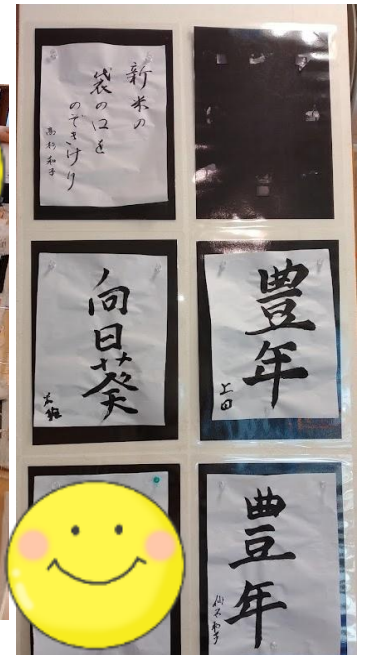 新米の
袋の口を
のぞきけり
高杉和子
向日葵
豊年
上田
豊年